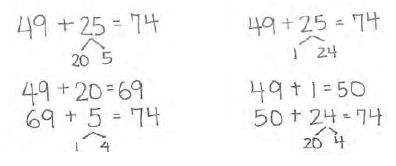 49 + 25 = 74
20 5
49 + 20 = 69
69 + 5 = 74
1 4
49 + 25 = 74
1 24
49 + 1 = 50
50 + 24 = 74
20 4